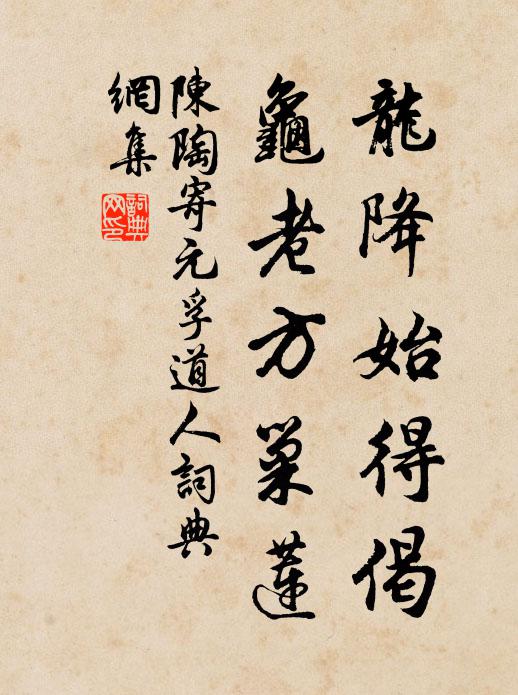 龍降始得偈
龜老方巢蓮
陳陶寄元孚道人詞典
網集
詞典
网印